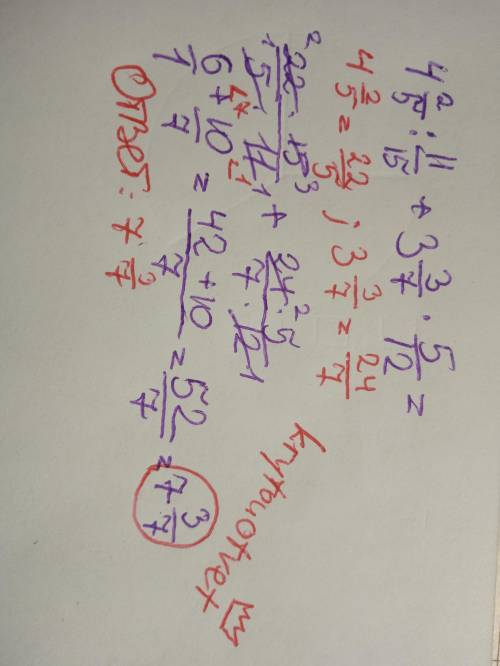 4 2/5 : 11/15 + 3 3/7 · 5/12 =
4 2/5 = 22/5 ; 3 3/7 = 24/7
22 · 15/5 · 11 + 24 · 5/7 · 12
6/1 + 10/7 = 42 + 10/7 = 52/7 = 7 3/7
Ответ: 7 3/7
krytouotvet